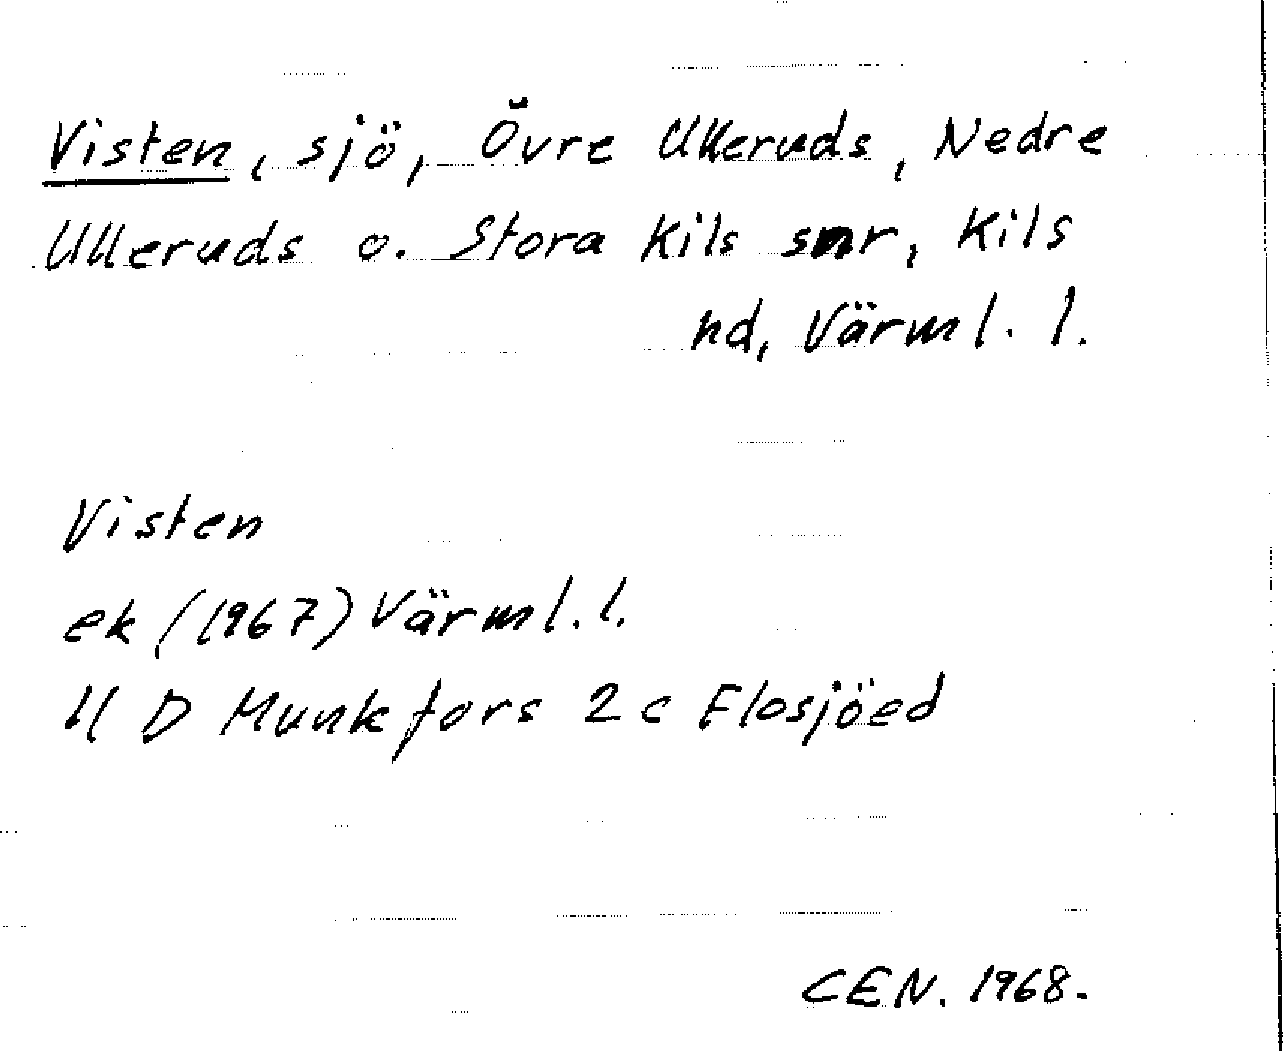 Visten, sjö, Övre Ulleruds, Nedre
Ulleruds o. Stora Kils snr, Kils
hd, Värml. l.
Visten
ek (1967) Värml. l.
11 D Munkfors 2 c Flosjöed
CEN. 1968.